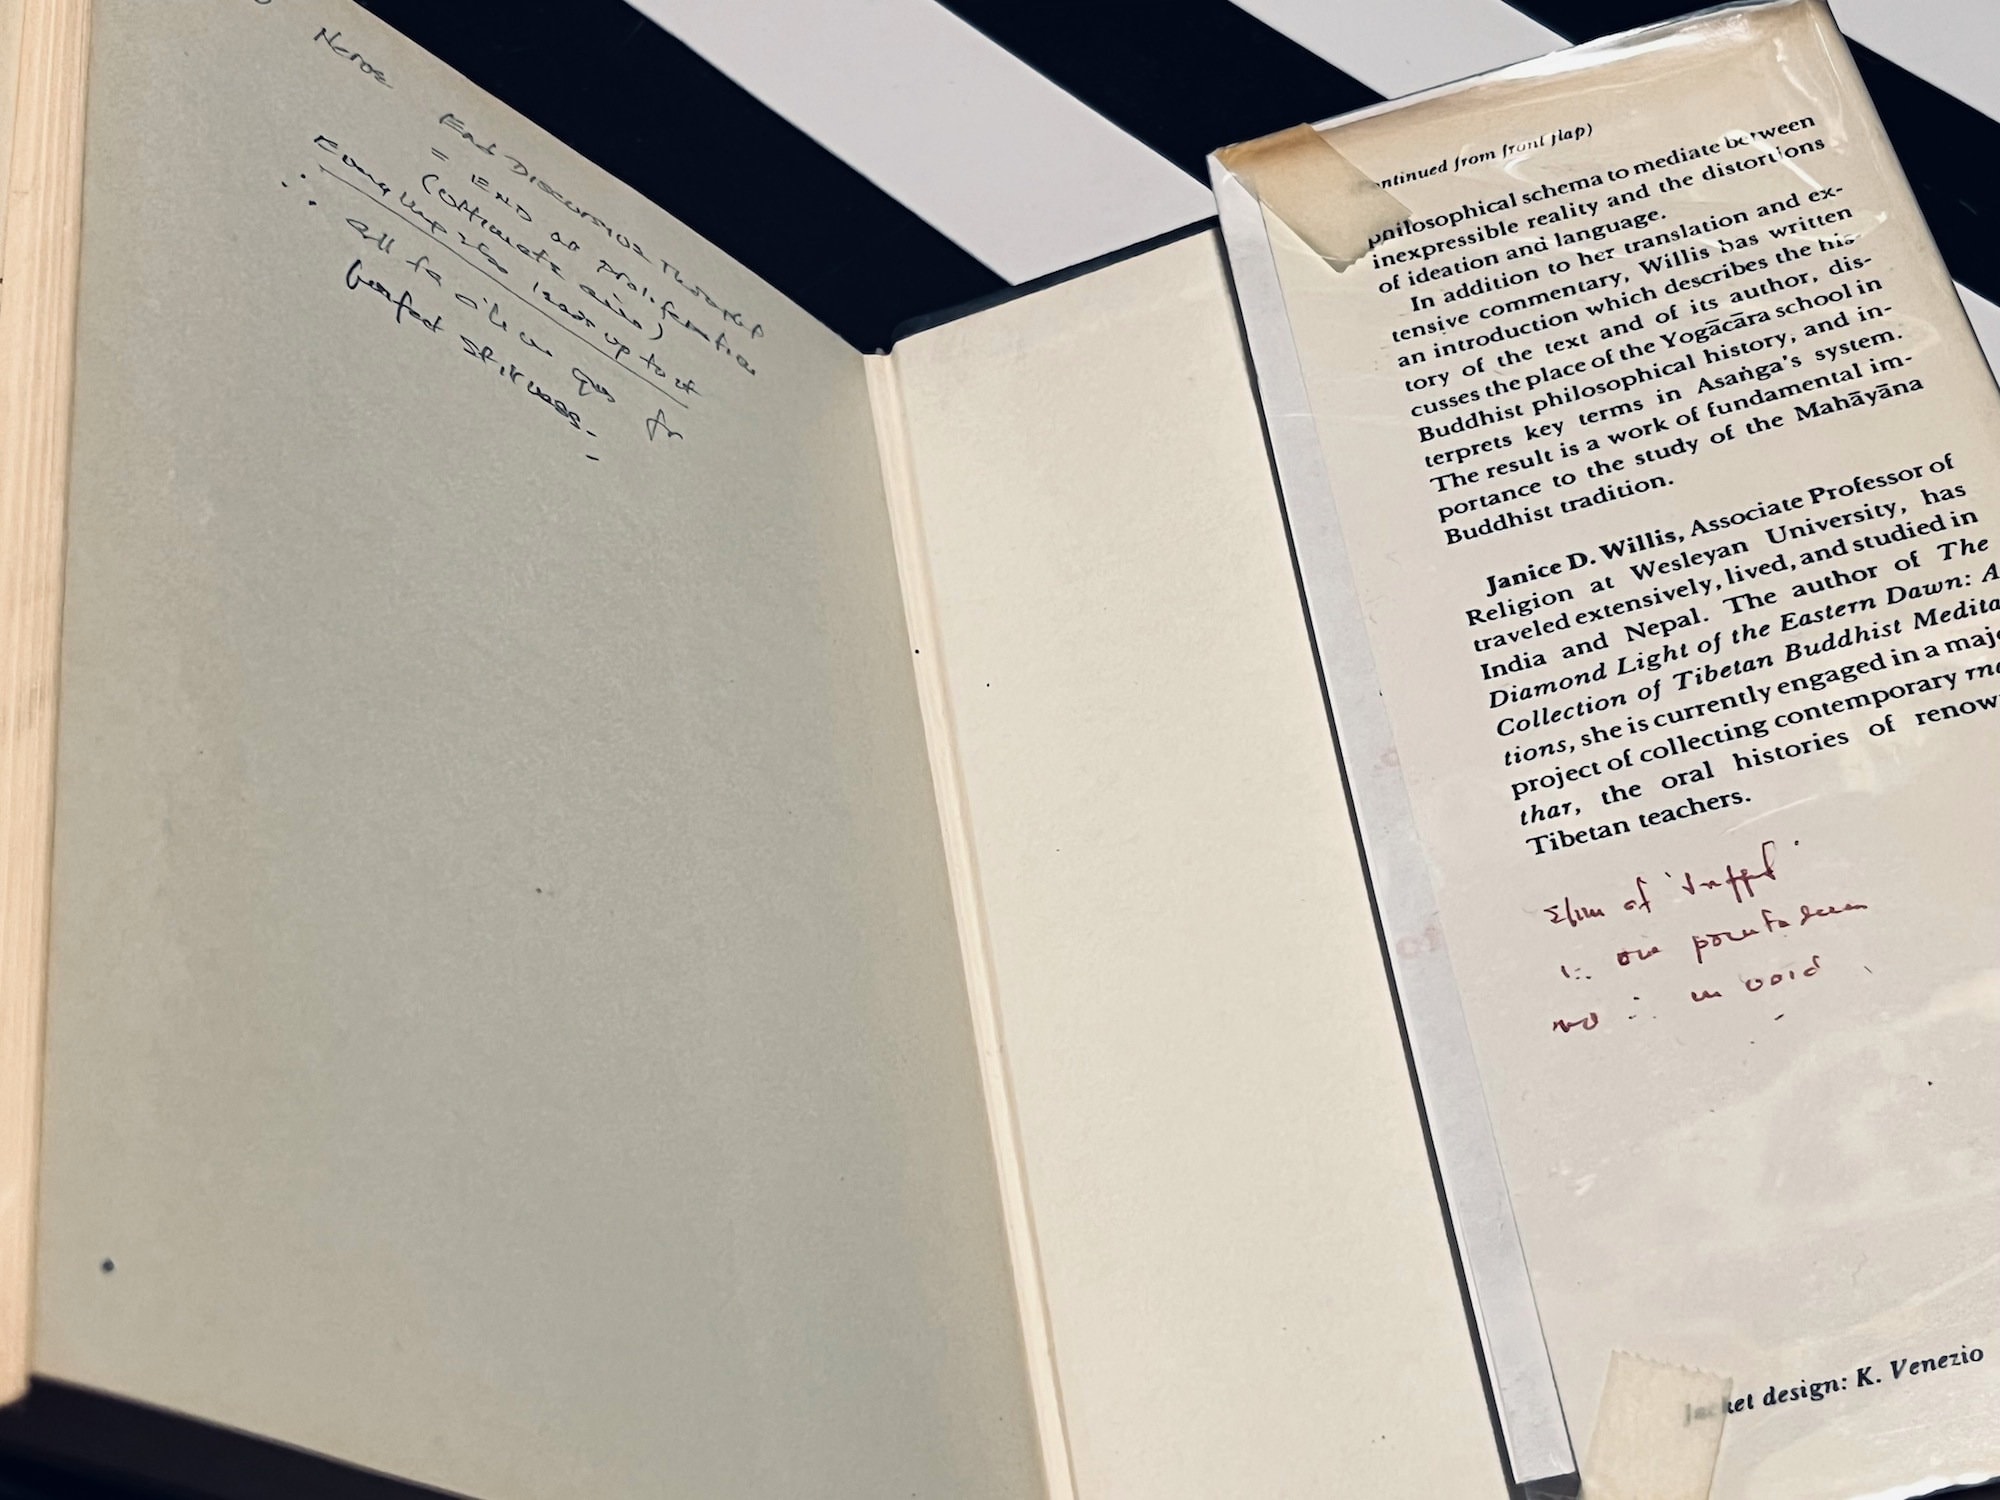 End Discursive Thought
= END of proliferation
(ultimate aim)
all to
perfect stillness.
continued from front flap)
philosophical schema to mediate between
inexpressible reality and the distortions
of ideation and language.
In addition to her translation and ex-
tensive commentary, Willis has written
an introduction which describes the his-
tory of the text and of its author, dis-
cusses the place of the Yogācāra school in
Buddhist philosophical history, and in-
terprets key terms in Asaṅga's system.
The result is a work of fundamental im-
portance to the study of the Mahāyāna
Buddhist tradition.
Janice D. Willis, Associate Professor of
Religion at Wesleyan University, has
traveled extensively, lived, and studied in
India and Nepal. The author of The
Diamond Light of the Eastern Dawn: A
Collection of Tibetan Buddhist Medita
tions, she is currently engaged in a majo
project of collecting contemporary rna
thar, the oral histories of renow
Tibetan teachers.
Elim of
in void
Jacket design: K. Venezio